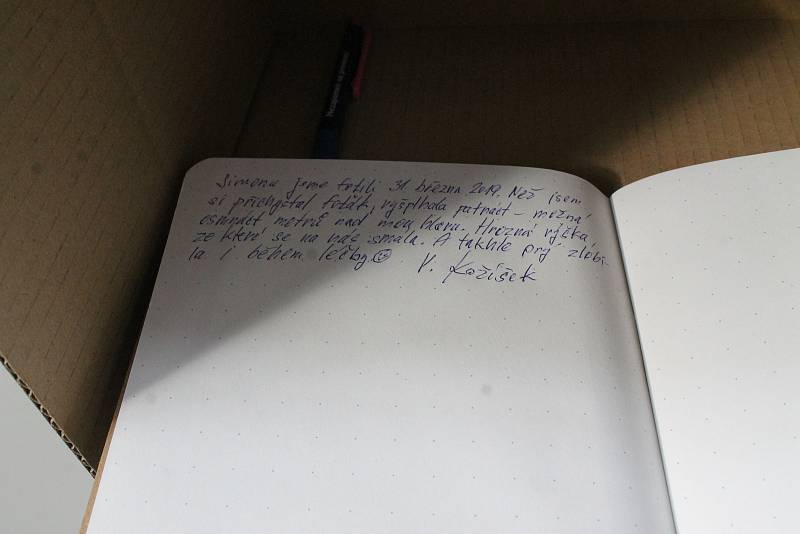 Simonu jsme fotili 31. března 2019. Než jsem
si přichystal foťák, vyšplhala patnáct – možná
osmnáct metrů nad mou hlavu. Hrozná výška,
ze které se na nás smála. A takhle prý zlobi-
la i během léčby ☺
V. Kožíšek